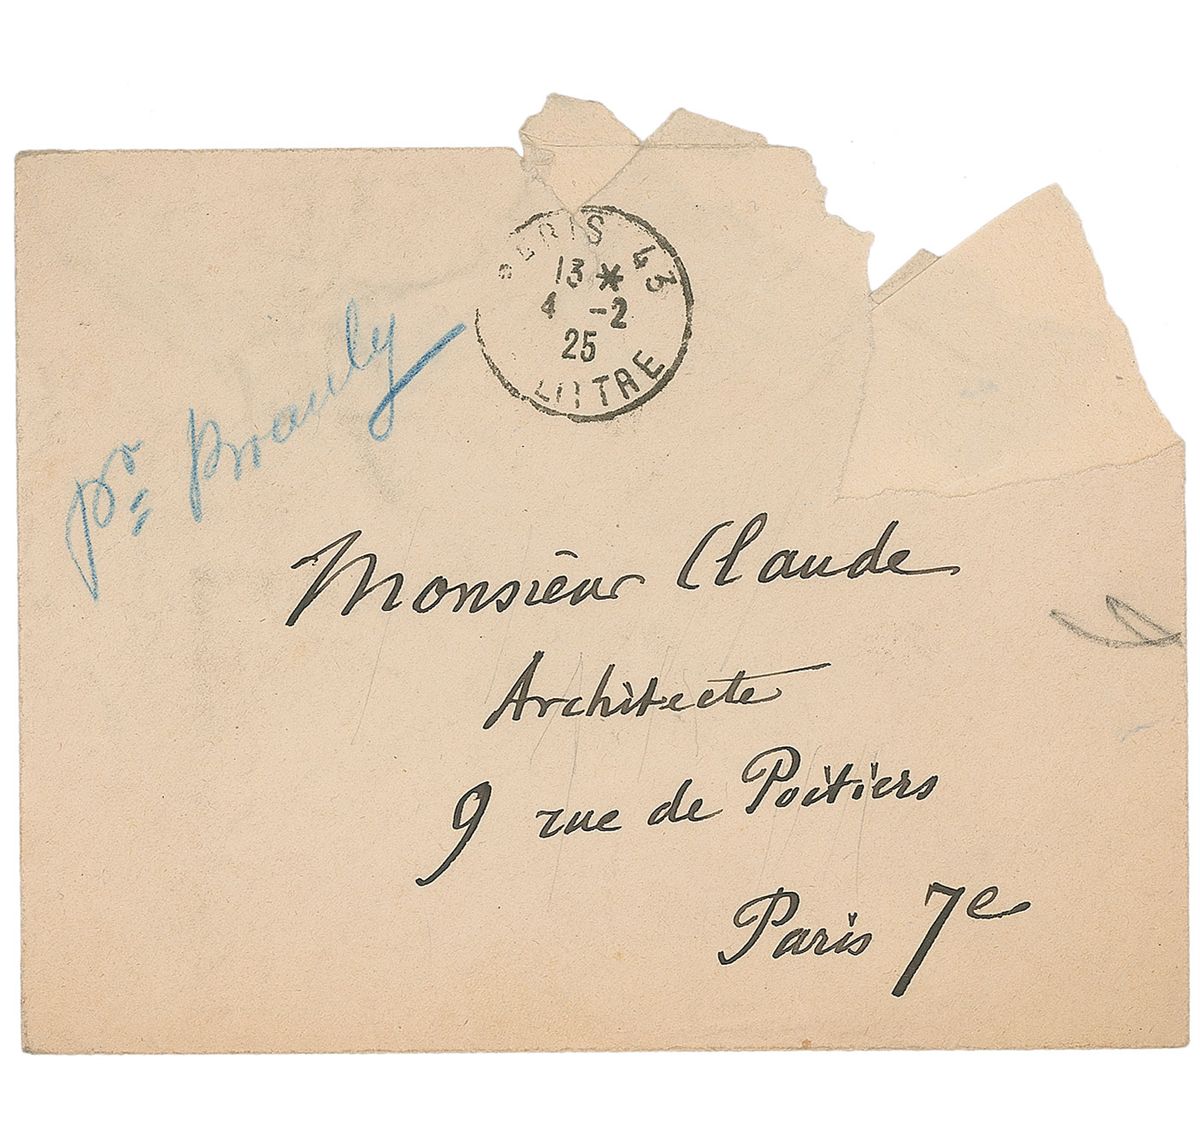 PARIS 43
13 *
4 -2
25
LITTRE
pr
Monsieur Claude
Architecte
9 rue de Poitiers
Paris 7e